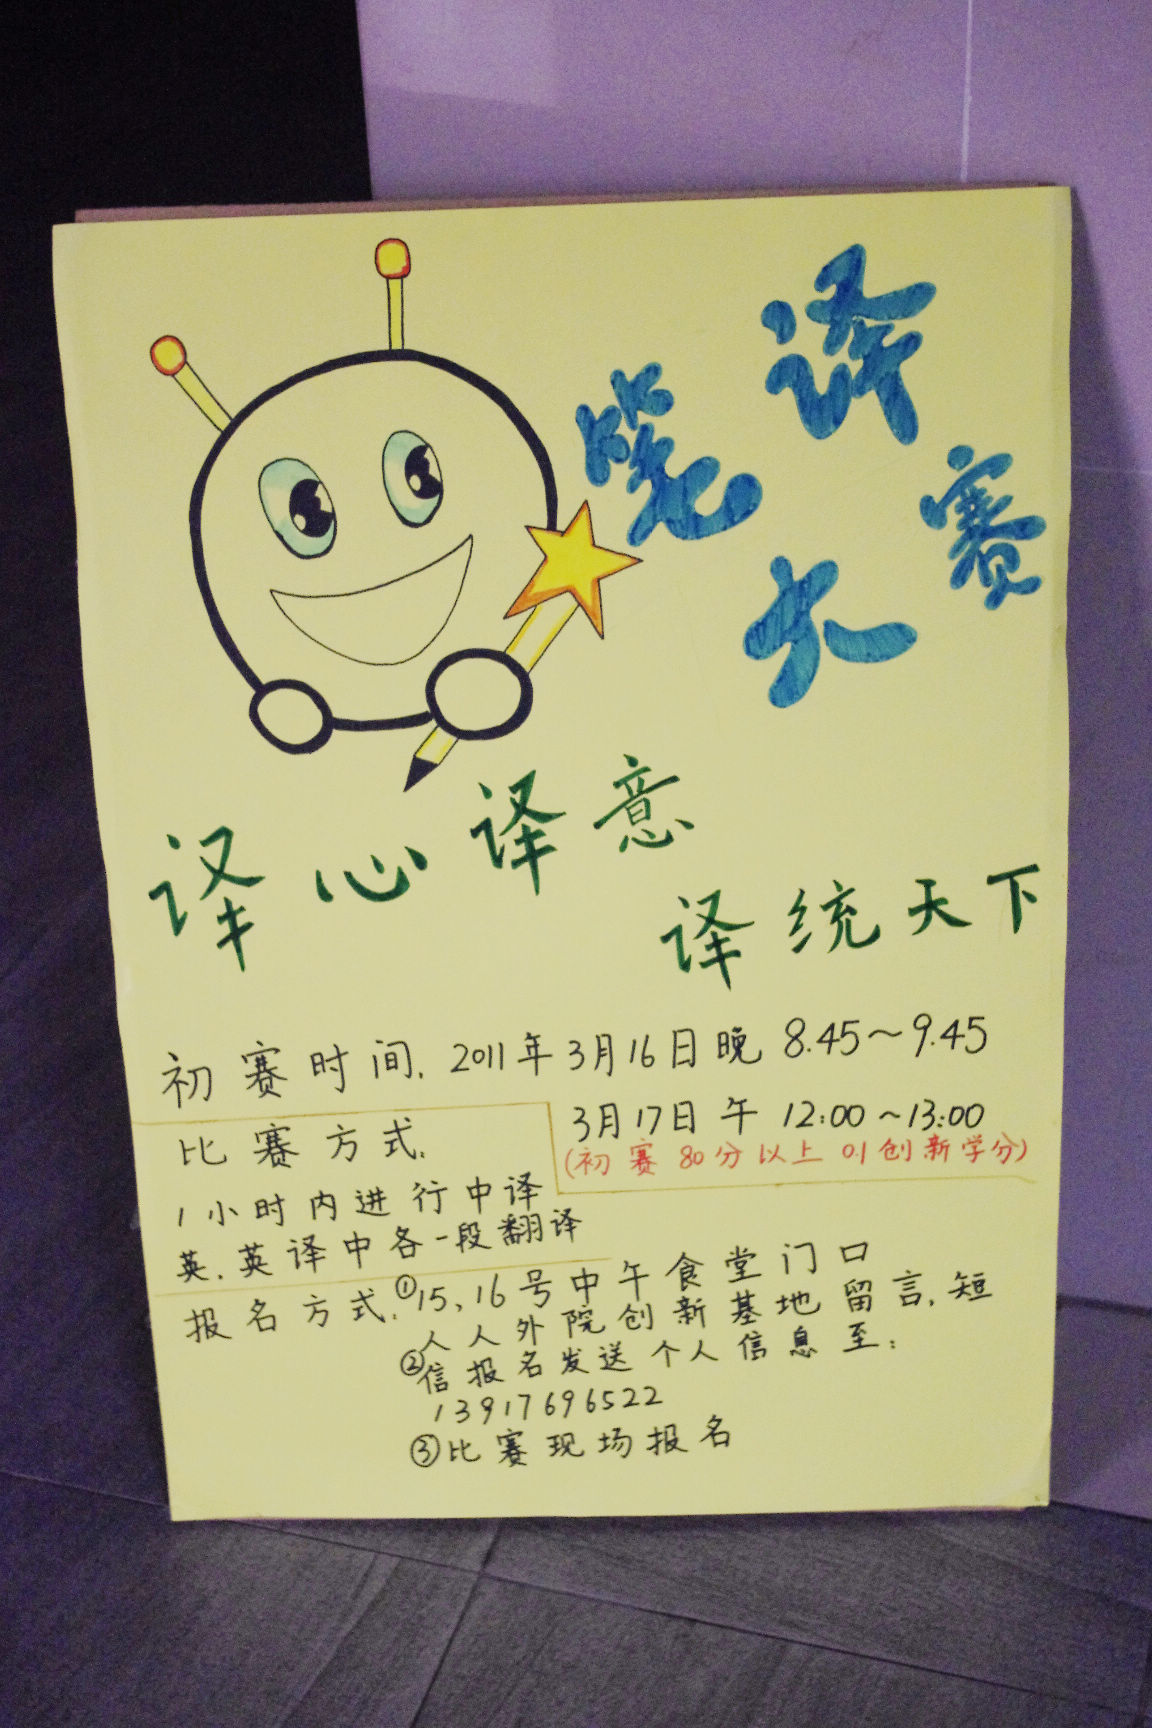 笔译
大赛
译心译意
译统天下
初赛时间. 2011年3月16日晚 8.45~9.45
3月17日 午 12:00~13:00
(初赛80分以上 0.1创新学分)
比赛方式.
1小时内进行中译
英.英译中各一段翻译
报名方式.①15、16号中午食堂门口
②人人外院创新基地留言.短
信报名发送个人信息至:
13917696522
③比赛现场报名